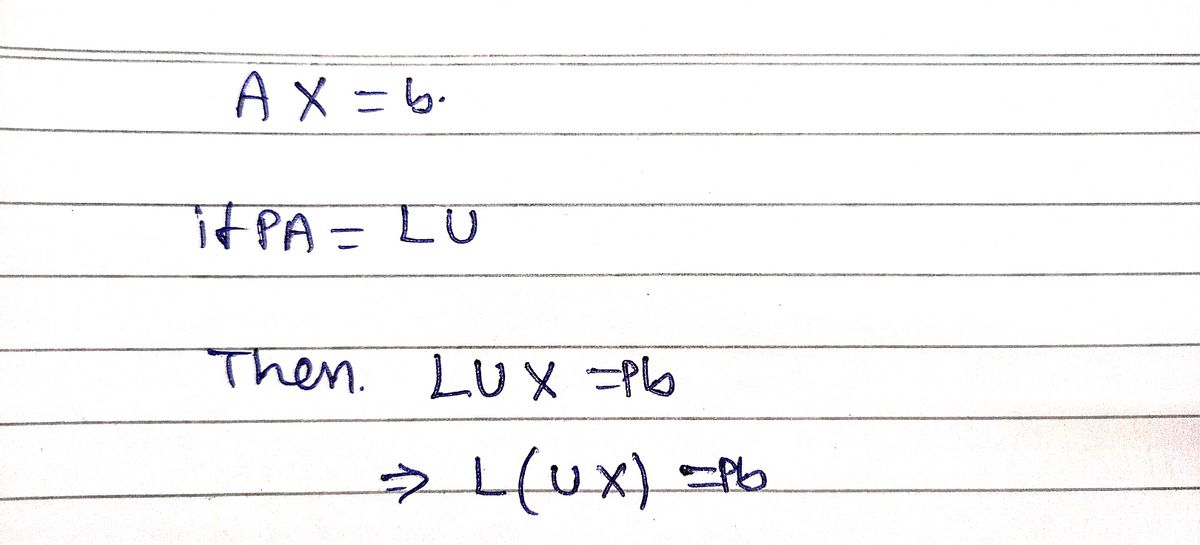 A X = b.
if PA = LU
Then. LUX = Pb
⇒ L(UX) = Pb